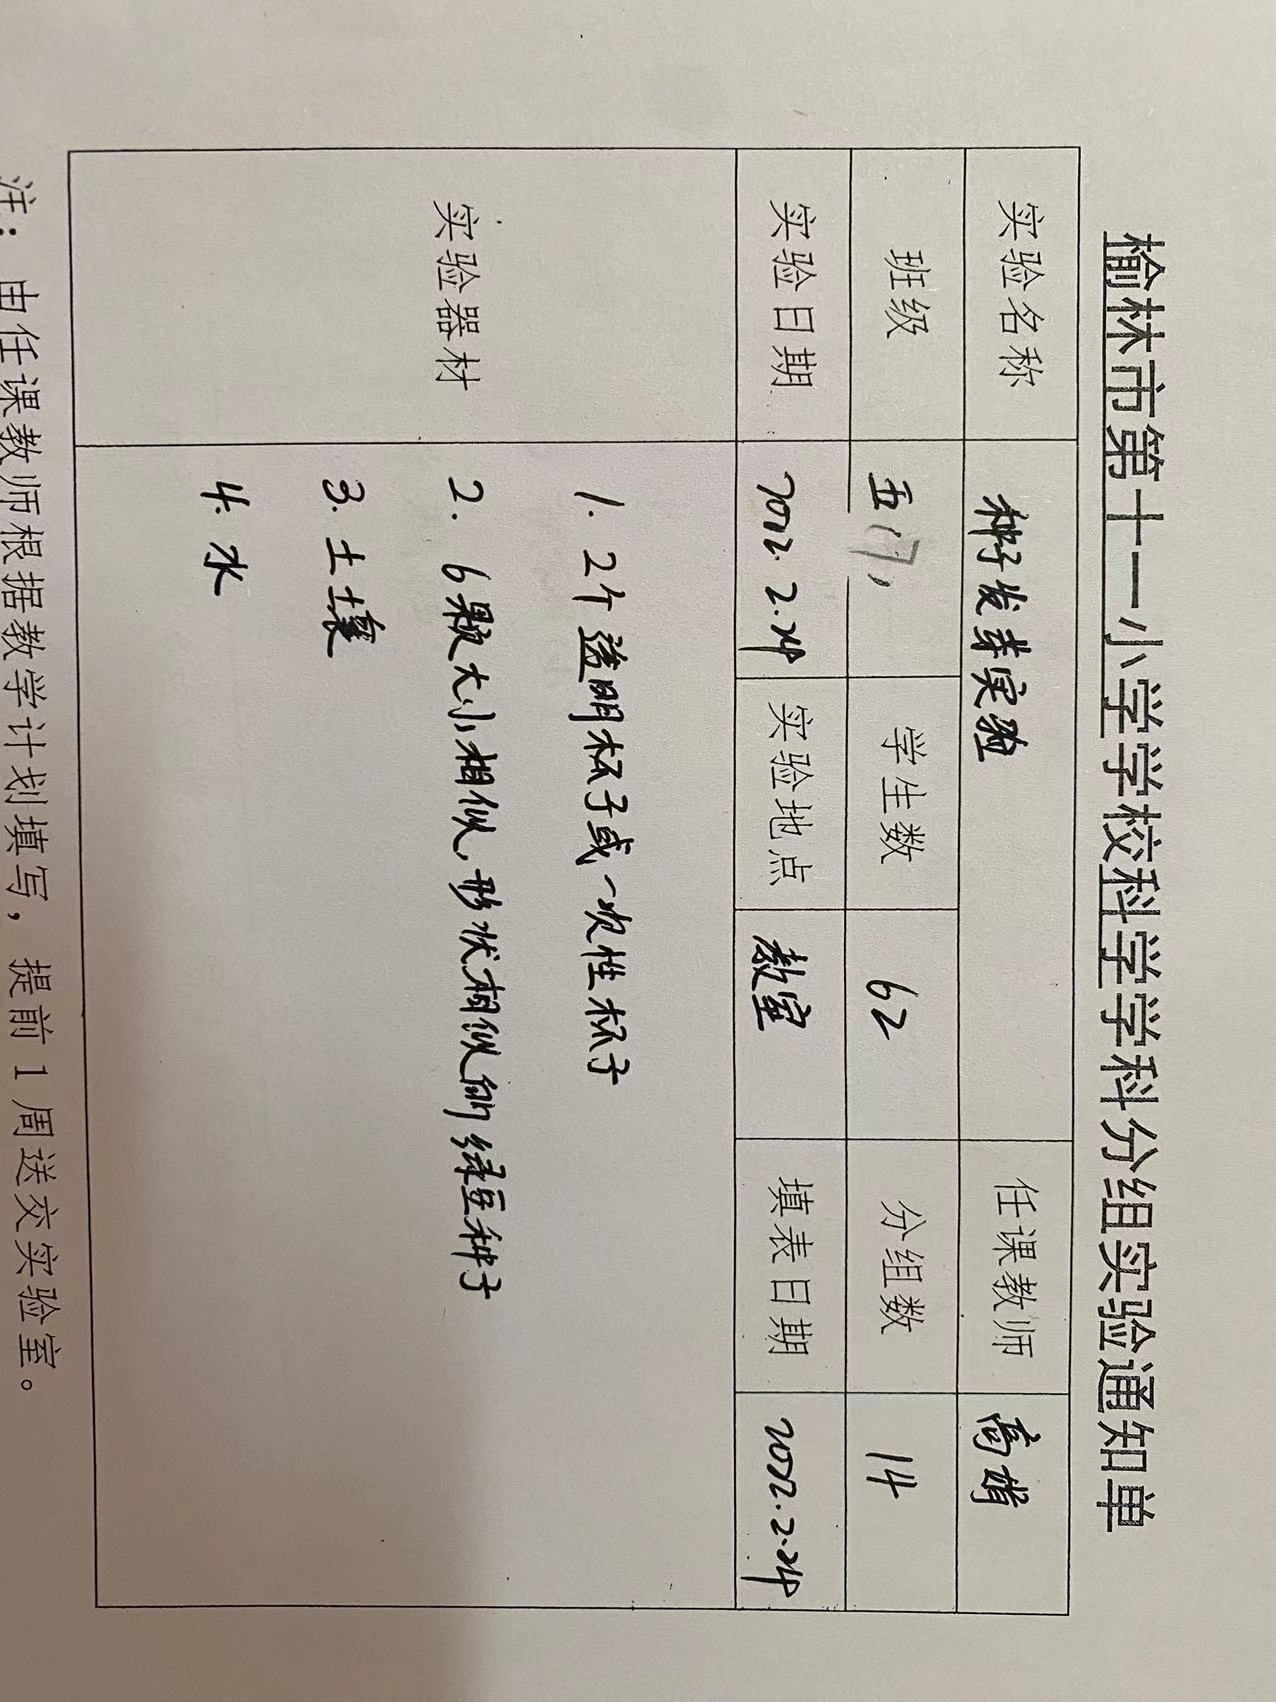 榆林市第十一小学学校科学学科分组实验通知单
实验名称 种子发芽实验 任课教师 高娟
班级 五 学生数 62 分组数 14
实验日期 2022.2.24 实验地点 教室 填表日期 2022.2.24
实验器材
1. 2个透明杯子或一次性杯子
2. 6颗大小相似,形状相似的绿豆种子
3. 土壤
4. 水
注：由任课教师根据教学计划填写，提前1周送交实验室。